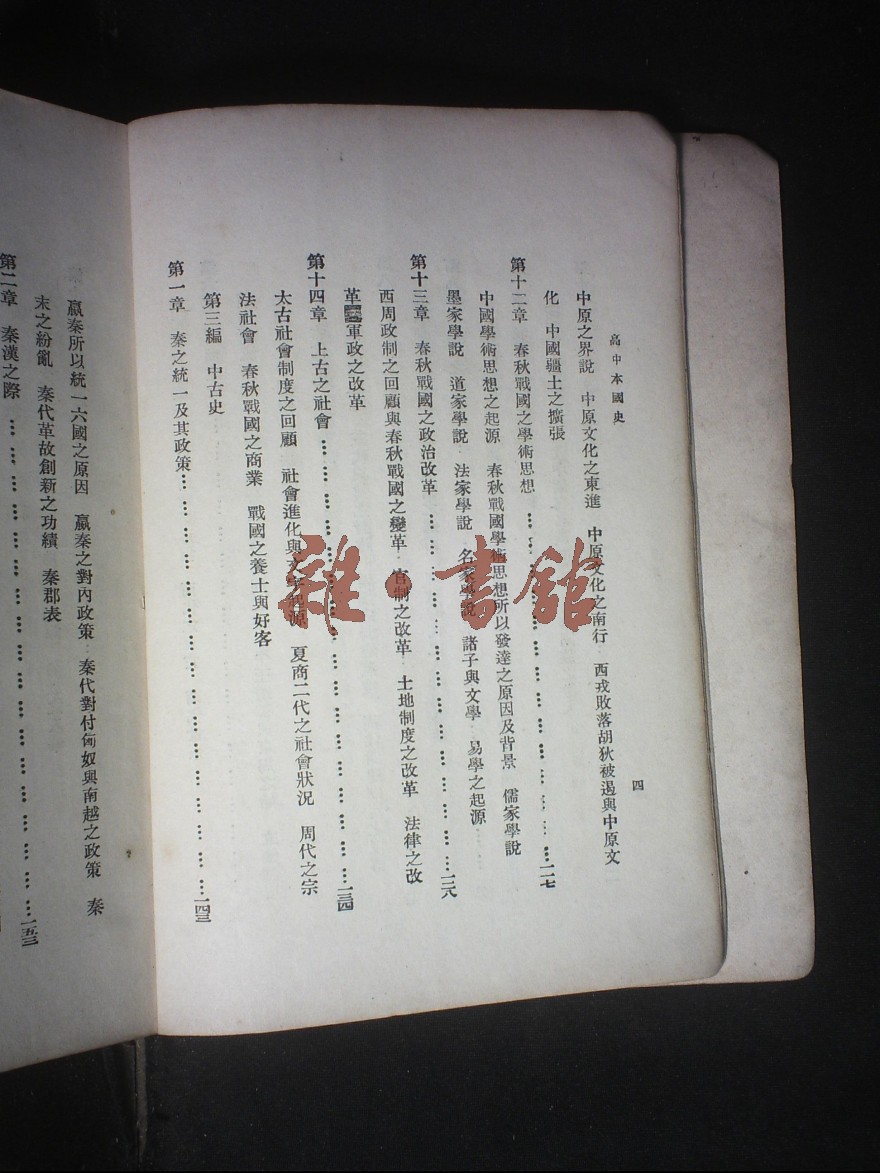 高中本國史
四
中原之界說 中原文化之東進 中原文化之南行 西戎敗落胡狄被遏與中原文
化 中國疆土之擴張
第十二章 春秋戰國之學術思想………………一一七
中國學術思想之起源 春秋戰國學術思想所以發達之原因及背景 儒家學說
墨家學說 道家學說 法家學說 名家學說 諸子與文學 易學之起源
第十三章 春秋戰國之政治改革………………一二八
西周政制之回顧與春秋戰國之變革 官制之改革 土地制度之改革 法律之改
革 軍政之改革
第十四章 上古之社會………………一三四
太古社會制度之回顧 社會進化與文字起源 夏商二代之社會狀況 周代之宗
法社會 春秋戰國之商業 戰國之養士與好客
第三編 中古史
第一章 秦之統一及其政策………………一四三
嬴秦所以統一六國之原因 嬴秦之對內政策 秦代對付匈奴與南越之政策 秦
末之紛亂 秦代革故創新之功績 秦郡表
第二章 秦漢之際………………一五三
雜·書館